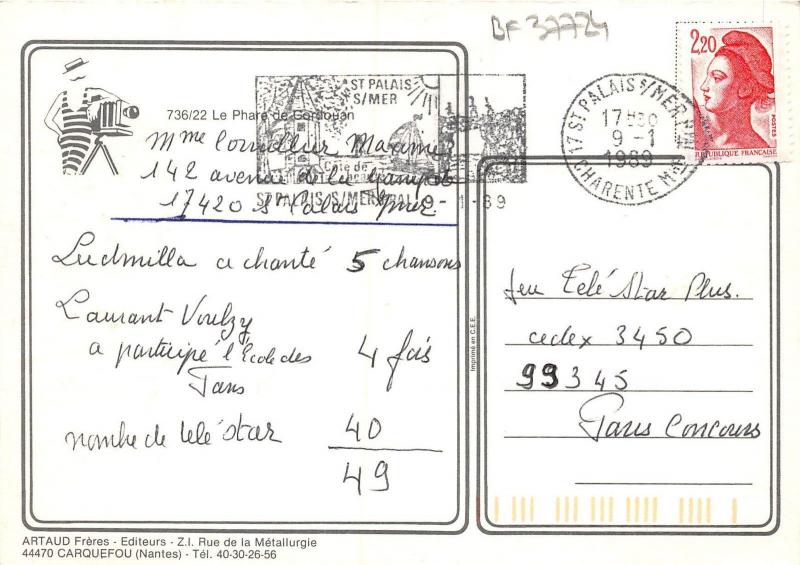 BF 37724
2,20
POSTES
REPUBLIQUE FRANÇAISE
ST PALAIS
S/MER
17 ST PALAIS S/MER
17H30
9-1
1989
CHARENTE MME
736/22 Le Phare de Cordouan
Mme Cornollier Maxime
142 avenue de la
17420 St Palais s/mer
ST PALAIS S/MER
9-1-89
Ludmilla a chanté 5 chansons
Laurant Voulzy
a participé l'École des 4 fois
Fans
nombre de télé star 40
49
Jeu Télé Star Plus.
cedex 3450
99345
Paris Concours
Imprimé en C.E.E.
ARTAUD Frères - Editeurs - Z.I. Rue de la Métallurgie
44470 CARQUEFOU (Nantes) - Tél. 40-30-26-56